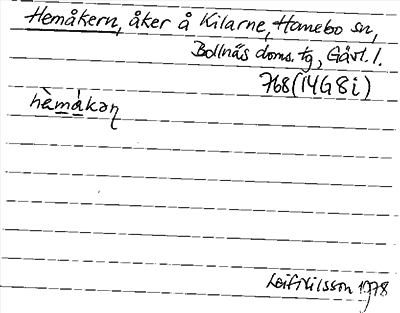 Hemåkern, åker å Kilarne, Hanebo sn,
Bollnäs doms. tg, Gävl. l.
768 (14G8i)
hèmákaɳ
Leif Nilsson 1978